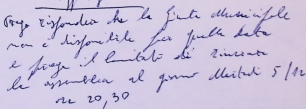 Prego rispondere che la Giunta Municipale
non è disponibile per quella data
e prega il Comitato di rinviare
la assemblea al giorno Martedì 5/12
ore 20,30